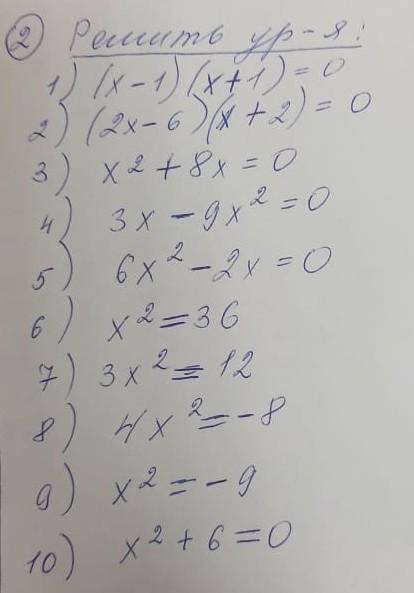 2 Решить ур-я:
1) (x-1)(x+1)=0
2) (2x-6)(x+2)=0
3) x²+8x=0
4) 3x-9x²=0
5) 6x²-2x=0
6) x²=36
7) 3x²=12
8) 4x²=-8
9) x²=-9
10) x²+6=0